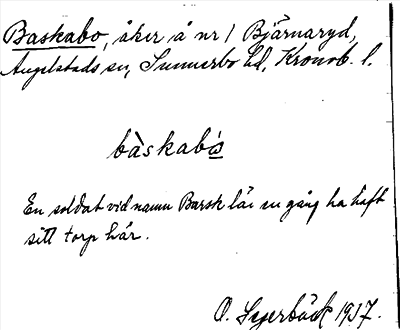 Baskabo, åker å nr 1 Bjärnaryd,
Angelstads sn, Sunnerbo hd, Kronob. l.
bàskabo
En soldat vid namn Barsk lär en gång ha haft
sitt torp här.
O. 1937.